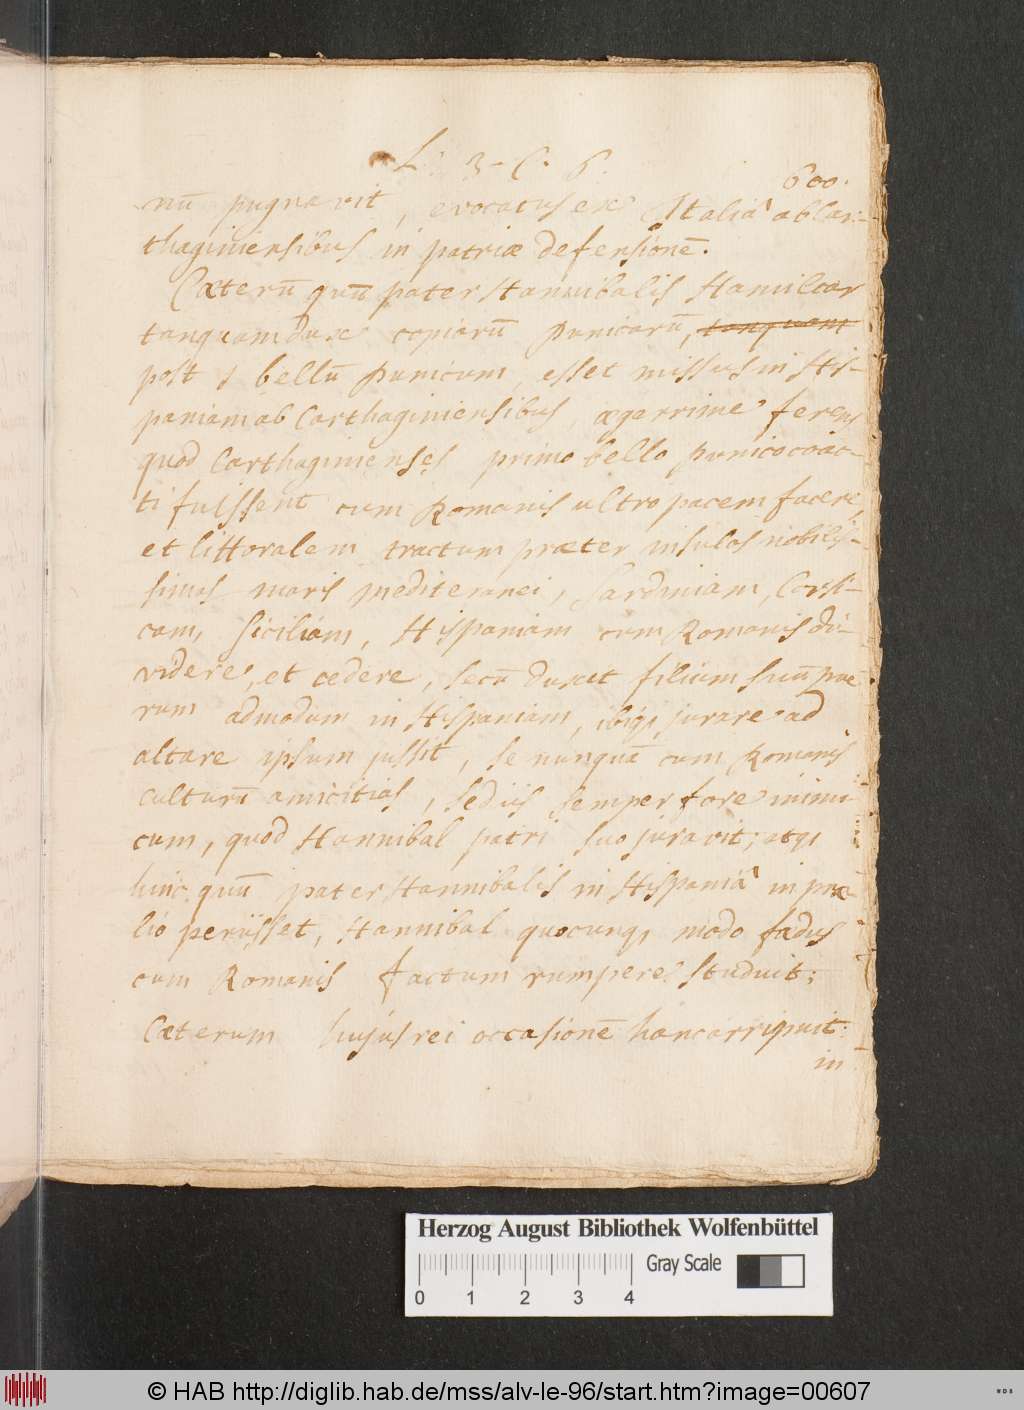 L. 3. C. 6.
600.
nū pugnavit, evocatus ex Italiâ a blar-
thaginiensibus in patriæ defensionē.
Cæterū quū pater Hannibalis Hamilcar
tanquam dux copiarū Punicarū, tanquam
post 1 bellū Punicum, esset missus in His-
paniam ab Carthaginiensibus, ægerrime ferens
quod Carthaginenses primo bello Punico coac-
ti fuissent cum Romanis ultro pacem facere,
et littoralem tractum præter insulas nobilis-
simas maris mediteranei, Sardiniam, Corsi-
cam, Siciliam, Hispaniam cum Romanis di-
videre, et cedere, secū duxit filium suū pue
rum admodum in Hispaniam, ibiq; jurare ad
altare ipsum jussit, se nunquā cum Romanis
culturū amicitias, sed iis semper fore inimi
cum, quod Hannibal patri suo juravit; atq;
hinc quū pater Hannibalis in Hispaniâ in præ
lio periisset, Hannibal quocunq; modo fædus
cum Romanis factum rumpere studuit;
Cæterum hujus rei occasionē hanc arripuit:
in
Herzog August Bibliothek Wolfenbüttel
Gray Scale
0 1 2 3 4
© HAB http://diglib.hab.de/mss/alv-le-96/start.htm?image=00607